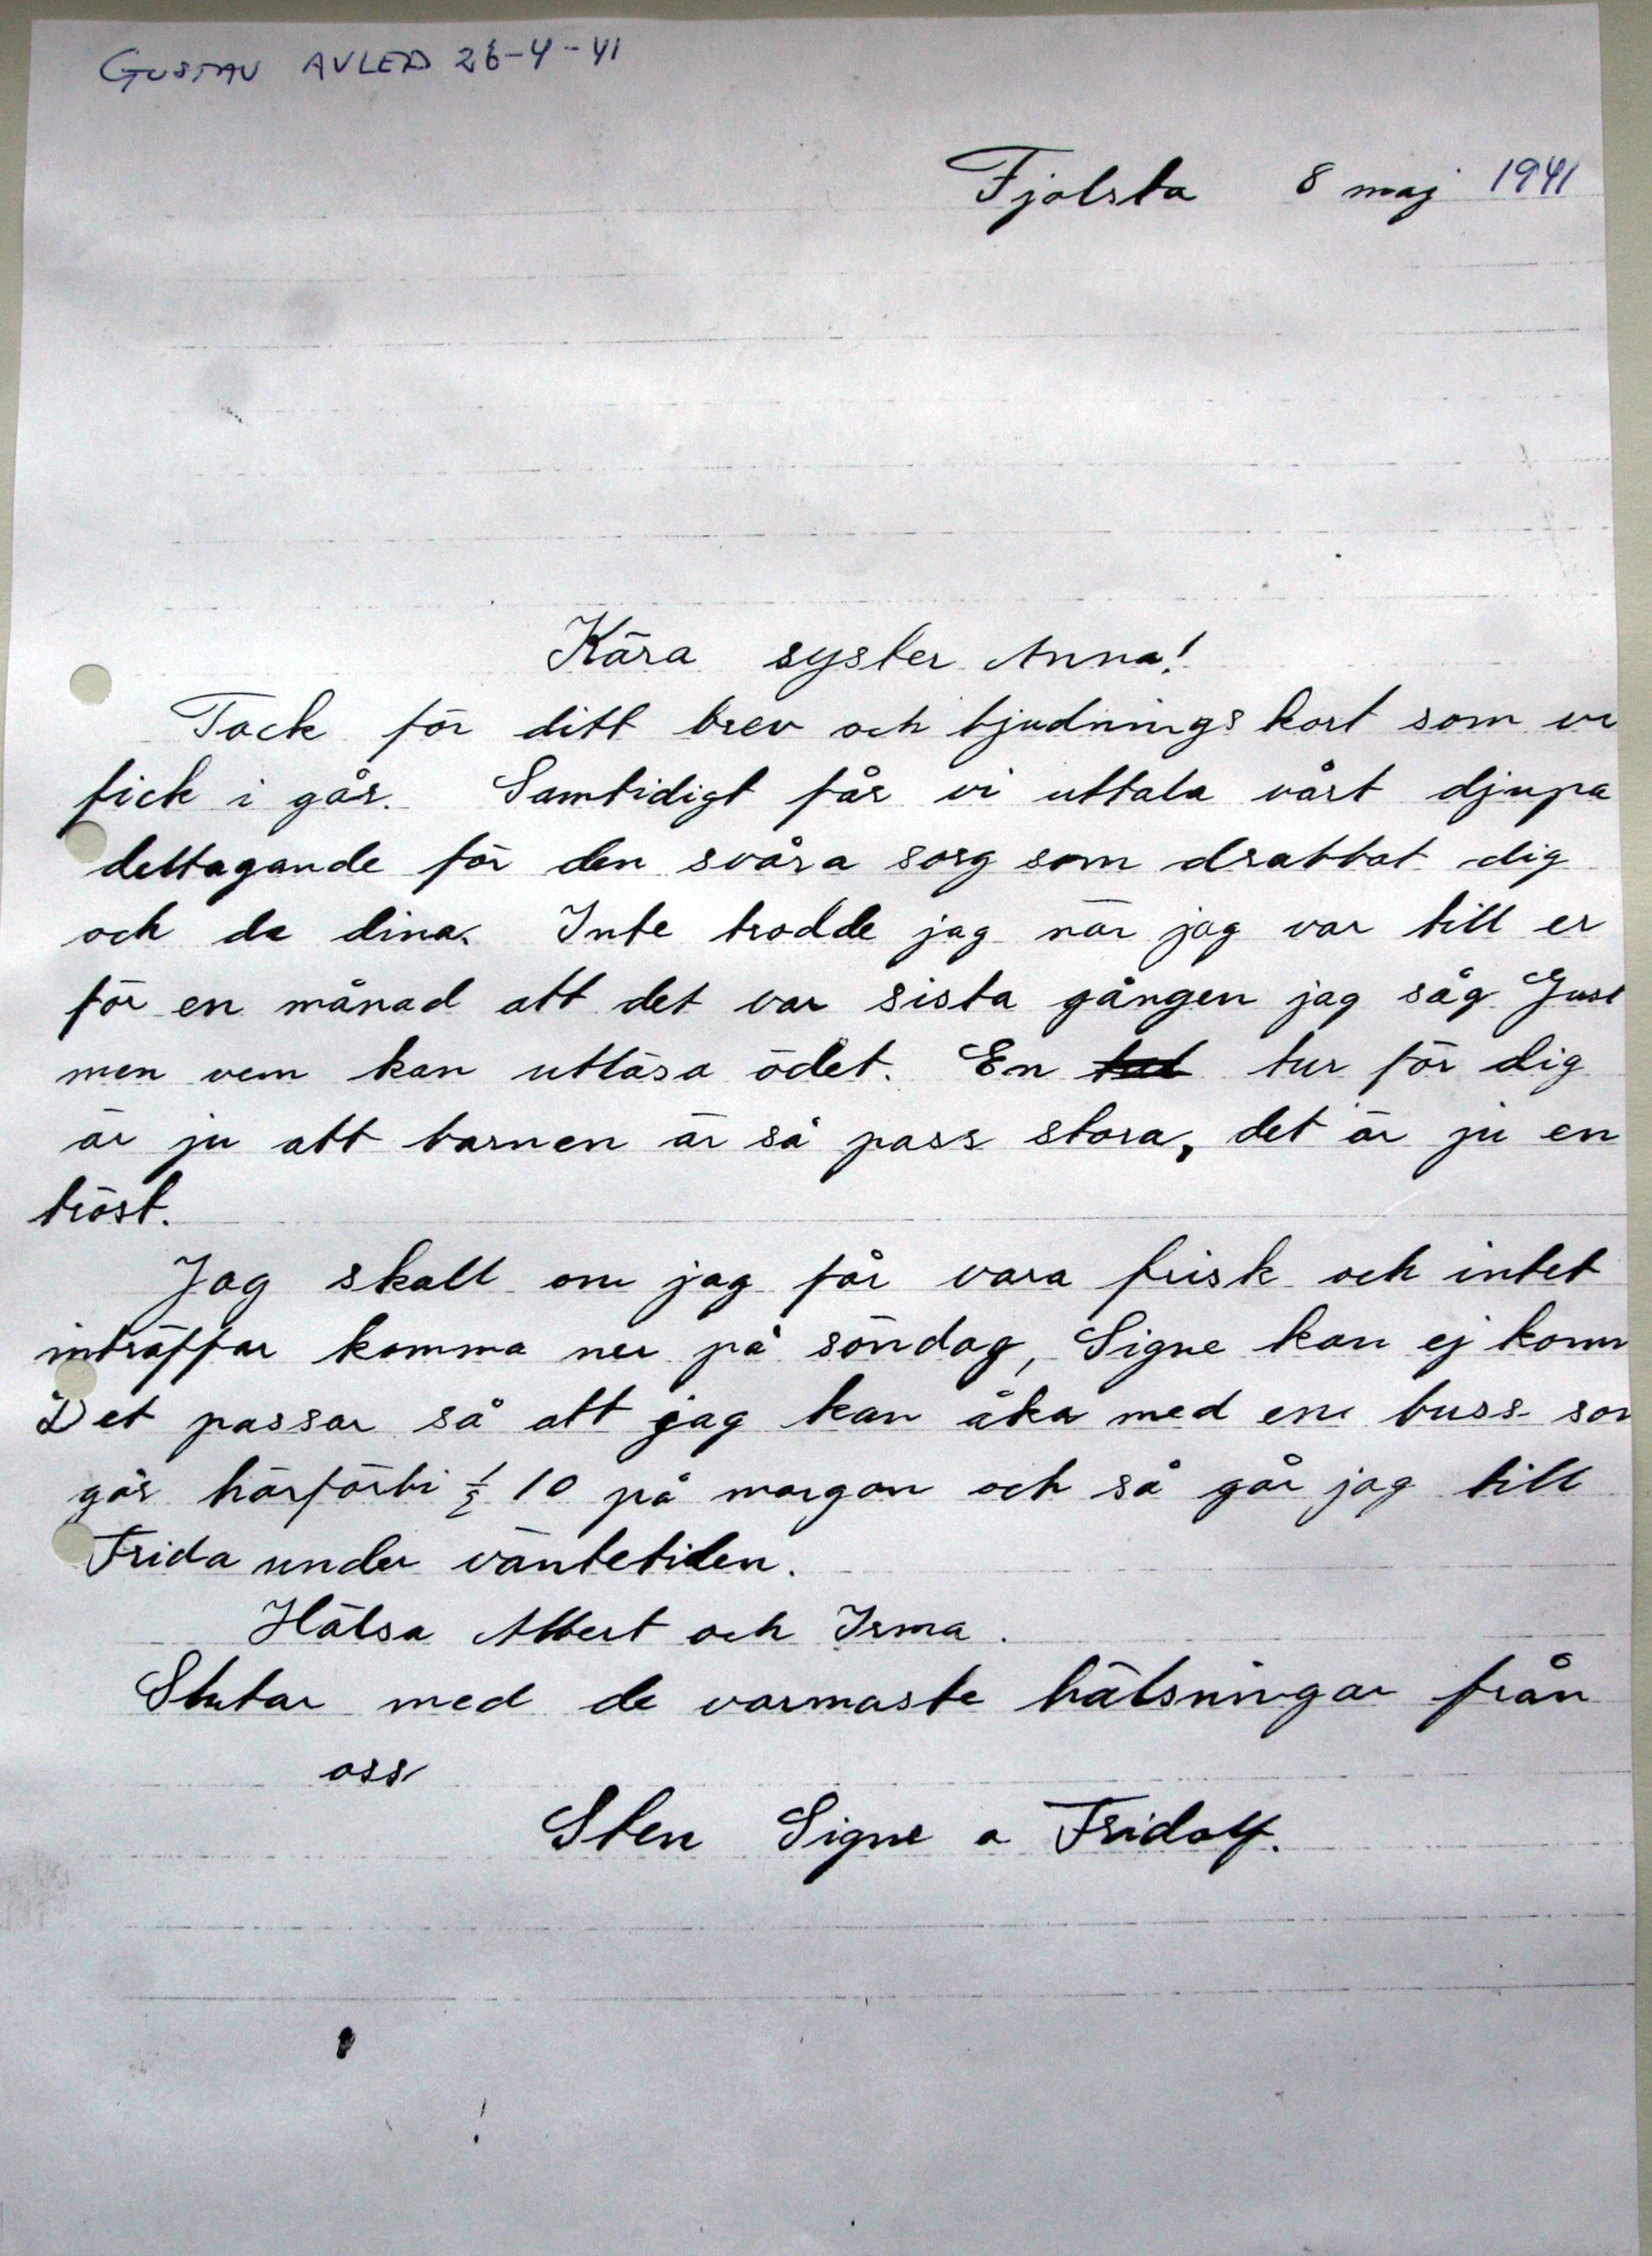 GUSTAV AVLED 26-4-41
Fjolsta 8 maj 1941
Kära syster Anna!
Tack för ditt brev och bjudnings kort som vi
fick i går. Samtidigt får vi uttala vårt djupa
deltagande för den svåra sorg som drabbat dig
och de dina. Inte trodde jag när jag var till er
för en månad att det var sista gången jag såg Gust
men vem kan utläsa ödet. En tur för dig
är ju att barnen är så pass stora, det är ju en
tröst.
Jag skall om jag får vara frisk och intet
inträffar komma ner på söndag, Signe kan ej komm
Det passar så att jag kan åka med en buss som
går härförbi ½ 10 på morgon och så går jag till
Frida under väntetiden.
Hälsa Albert och Irma.
Slutar med de varmaste hälsningar från
oss
Sten Signe o Fridolf.